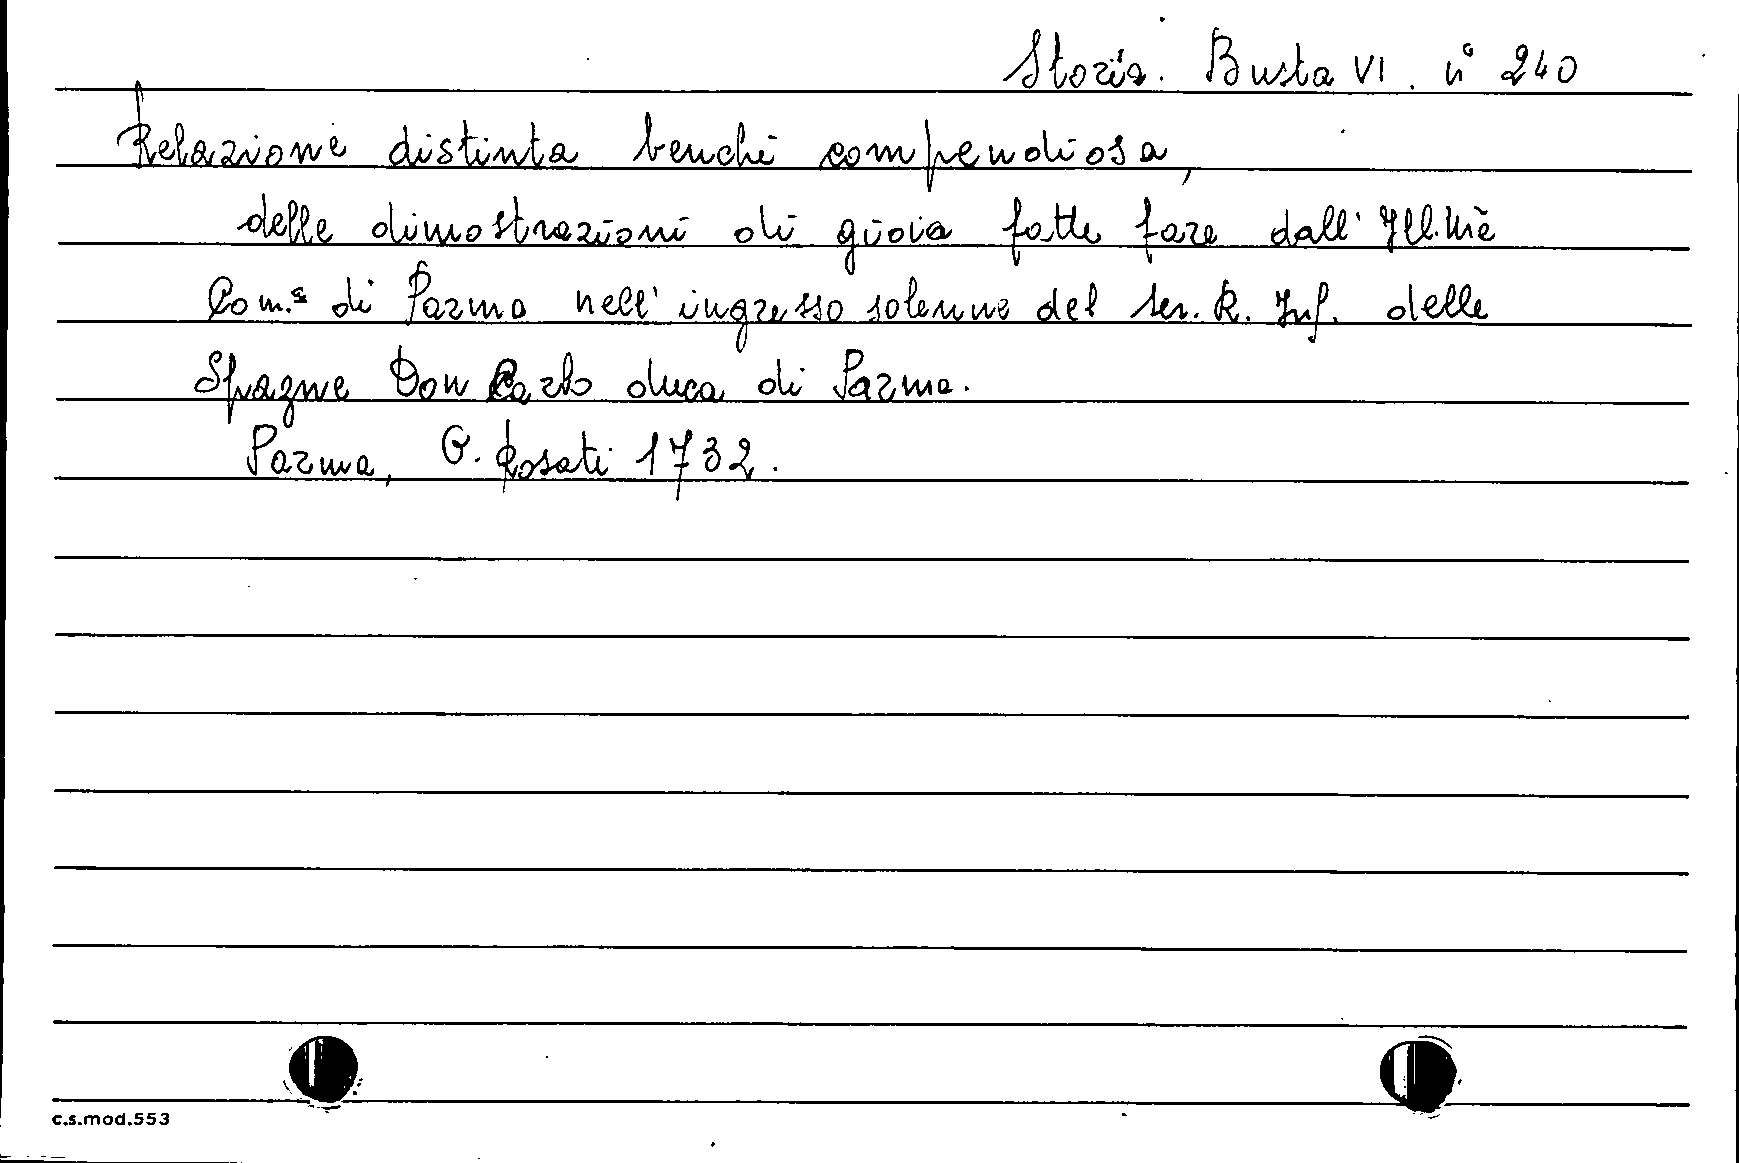 Storia. Busta VI. n° 240
Relazione distinta benchè compendiosa,
delle dimostrazioni di gioia fatte fare dall'Ill.mè
Com.ª di Parma nell'ingresso solenne del ser. R. Inf. delle
Spagne Don Carlo duca di Parma.
Parma, G. Rosati 1732.
c.s.mod.553